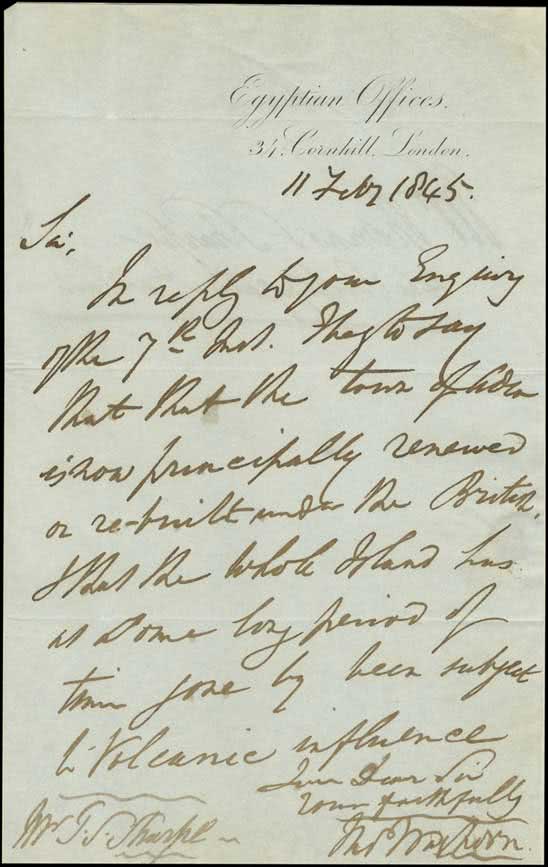 Egyptian Offices.
34, Cornhill, London.
11 Feby 1845.
Sir,
In reply to your Enquiry
of the 7th Inst. I beg to say
that that the town of Aden
is now principally renewed
or re-built under the British,
& that the whole Island has
at some long period of
time gone by been subject
to Volcanic influence
I am Dear Sir
Yours faithfully
Thos Waghorn.
Mr T. S. Sharpe